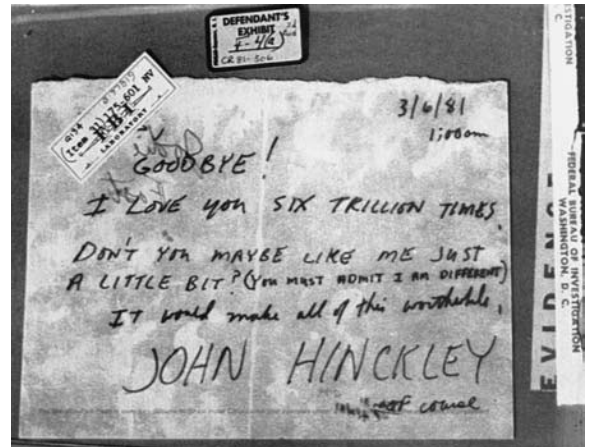 DEFENDANT'S
EXHIBIT
CR 81-306
Q-54
FBI
LABORATORY
3/6/81
1:00am
GOODBYE!
I LOVE YOU SIX TRILLION TIMES.
DON'T YOU MAYBE LIKE ME JUST
A LITTLE BIT? (YOU MUST ADMIT I AM DIFFERENT)
IT would make all of this worthwhile.
JOHN HINCKLEY
of course
EVIDENCE
FEDERAL BUREAU OF INVESTIGATION
WASHINGTON, D. C.